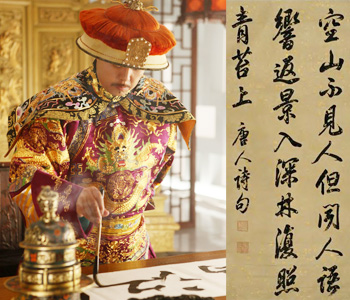 空山不見人但聞人語
響返景入深林復照
青苔上 唐人詩句